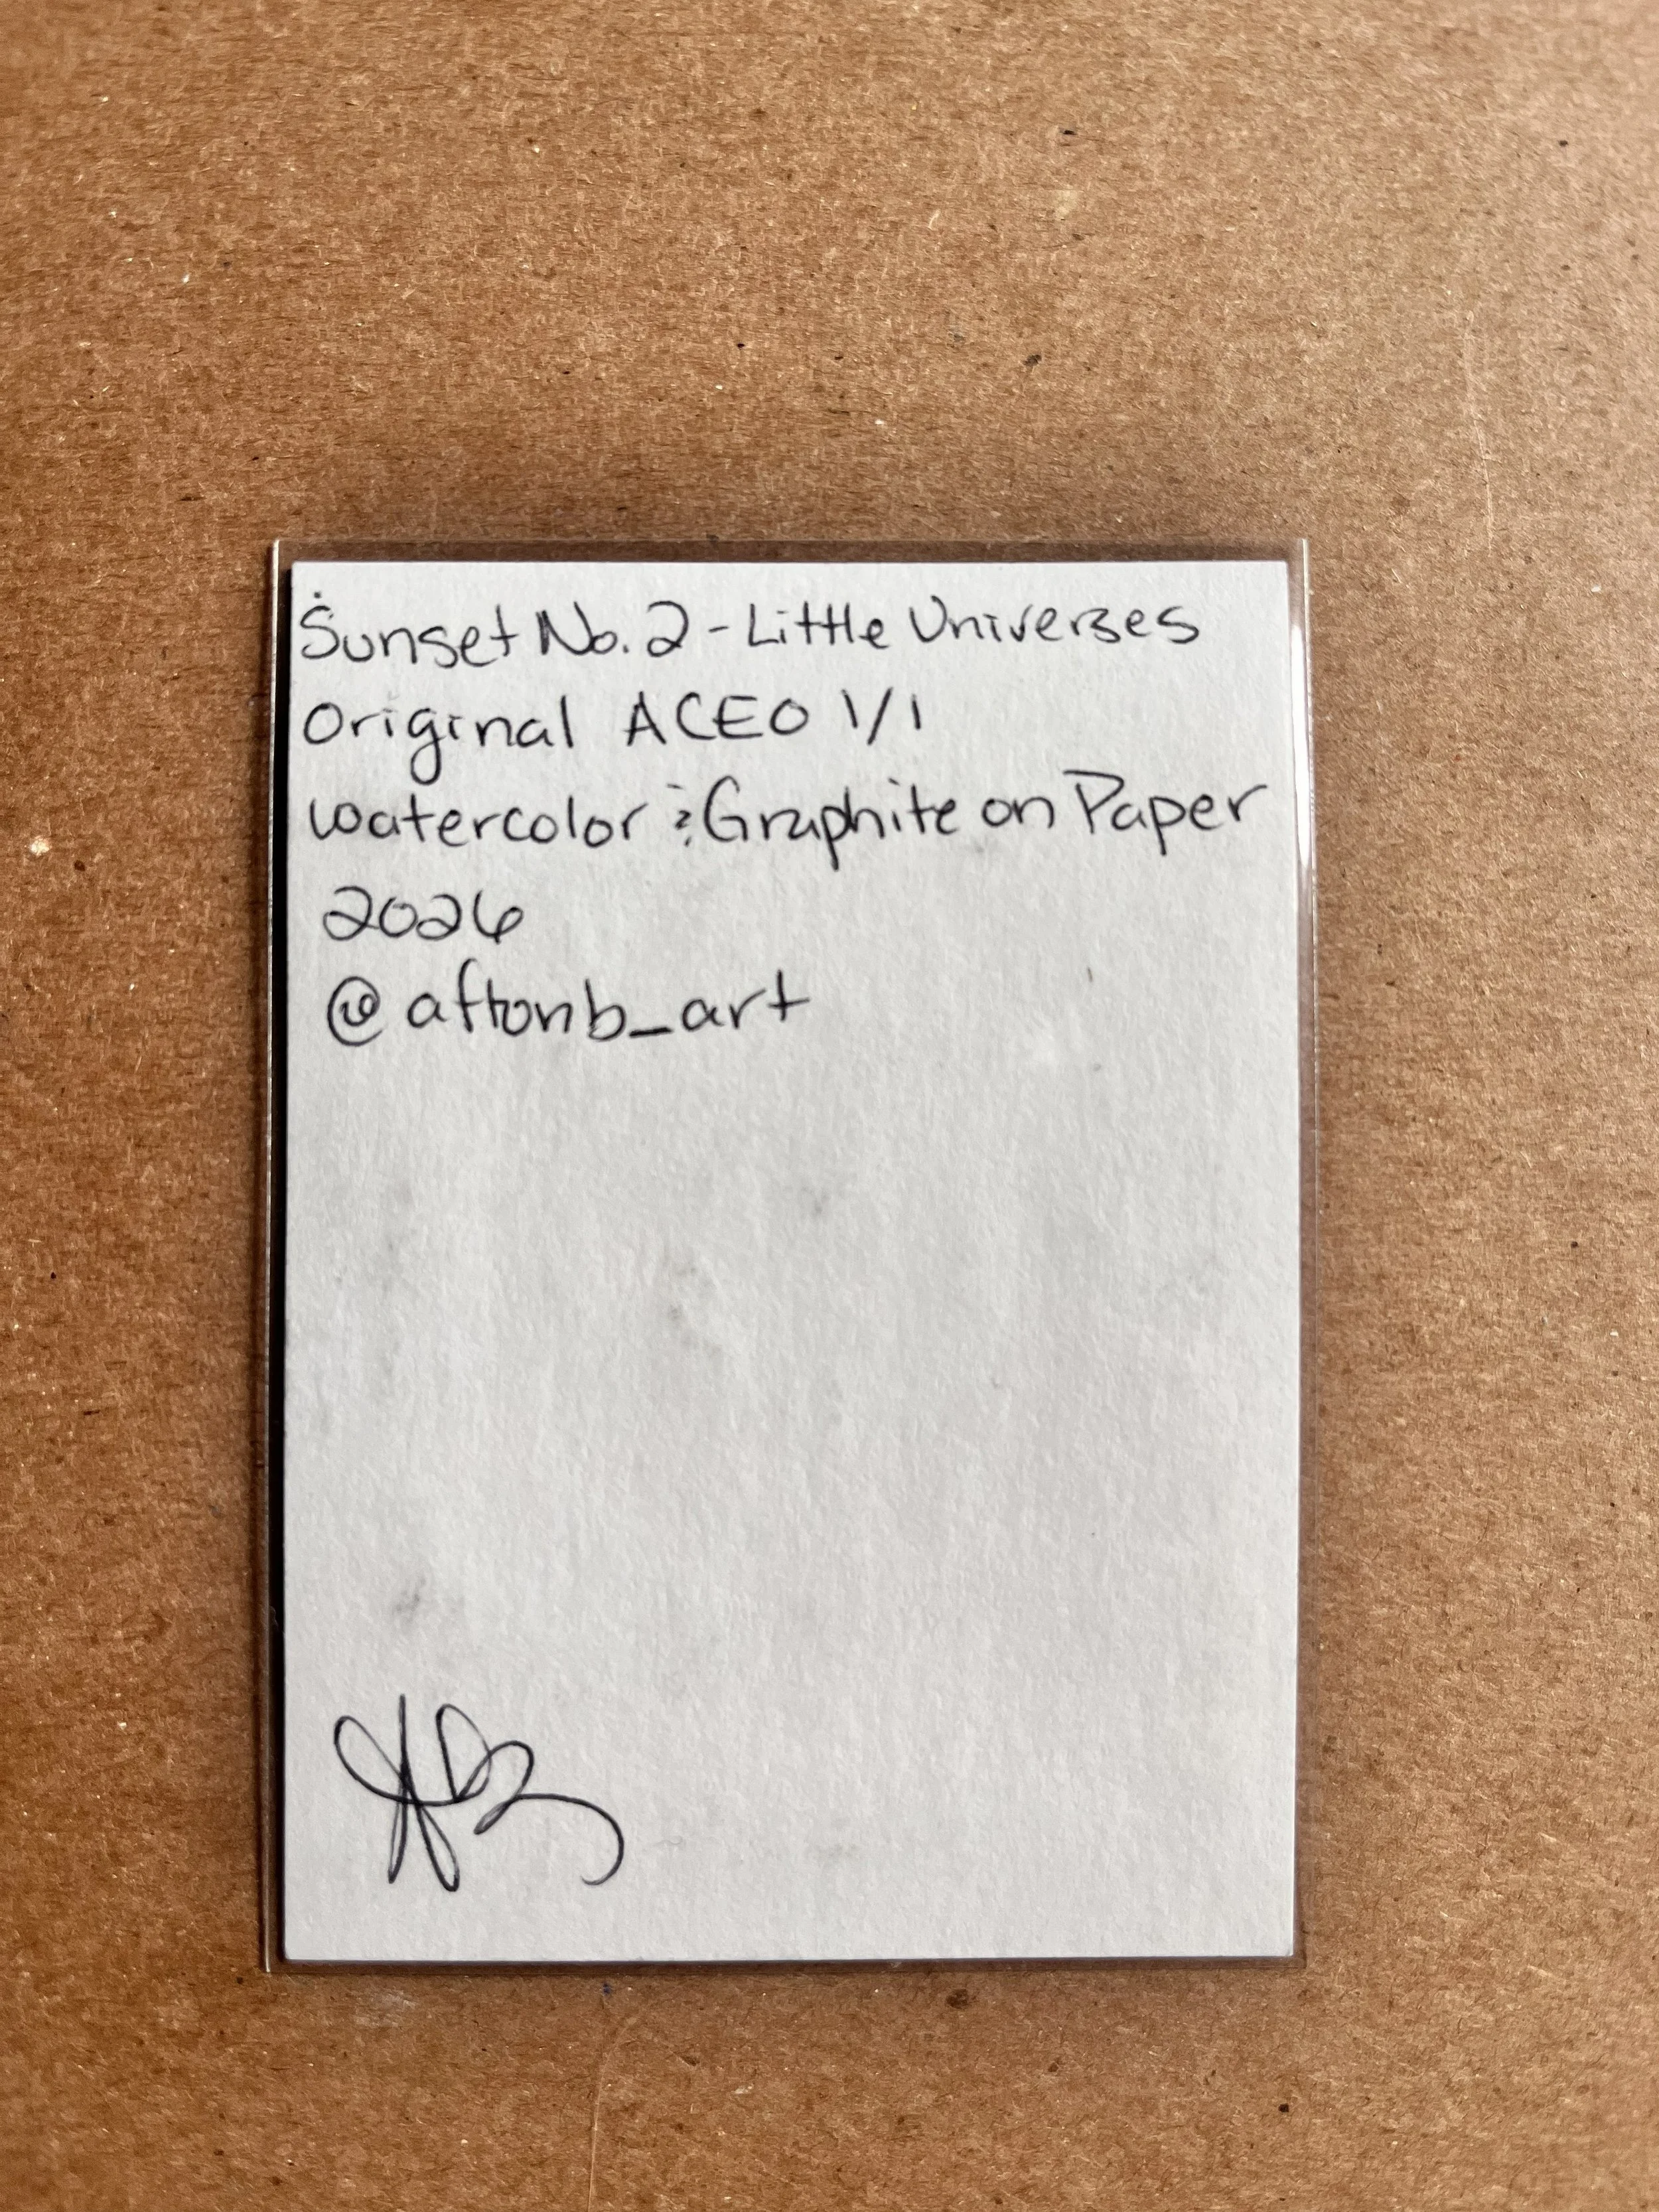 Sunset No. 2 - Little Universes
Original ACEO 1/1
Watercolor & Graphite on Paper
2026
@aftonb_art